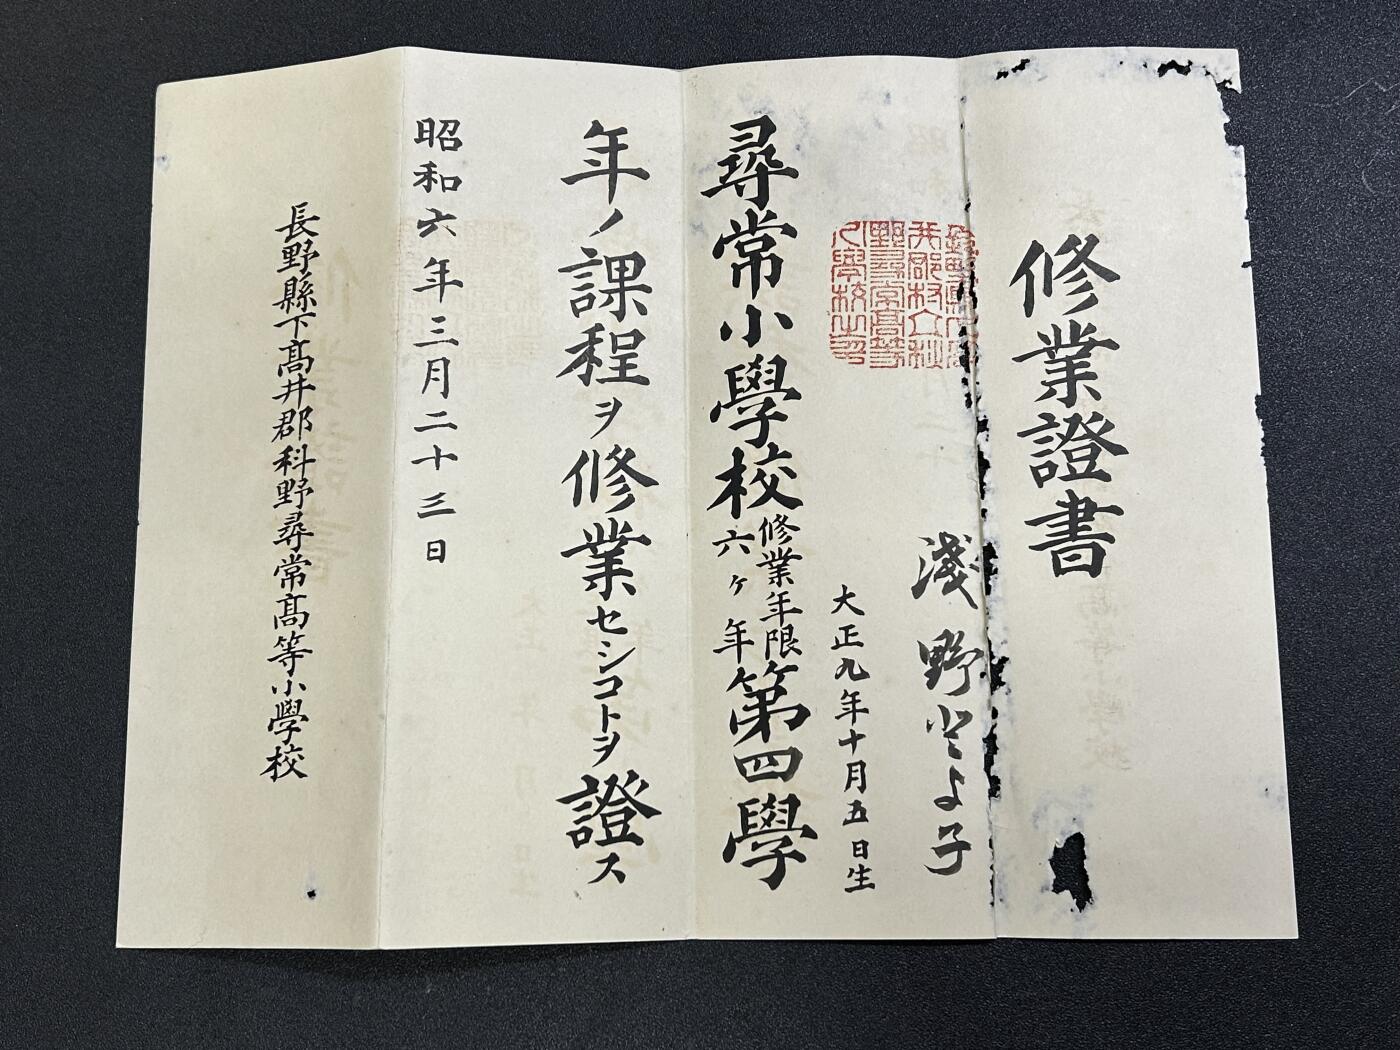 修業證書
淺野とよ子
大正九年十月五日生
尋常小學校修業年限六ヶ年第四學
年ノ課程ヲ修業セシコトヲ證ス
昭和六年三月二十三日
長野縣下髙井郡科野尋常髙等小學校
井郡村立科
野尋常高等
小學校之印